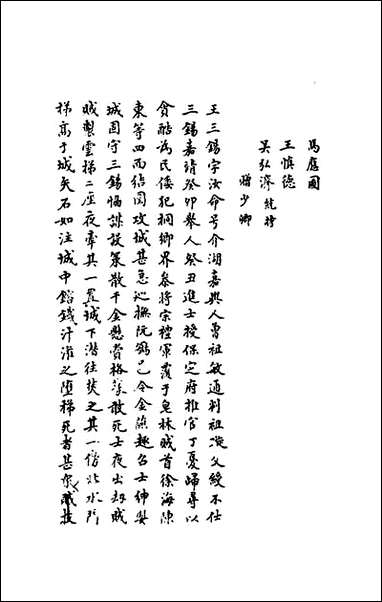 馬應圖
王慎德
吴弘濟 純持
贈少卿
王三錫字汝命号介湖嘉興人曽祖敏通判祖濙父綬不仕
三錫嘉靖癸卯舉人癸丑進士授保定府推官丁憂歸尋以
貪酷為民倭犯桐鄉界叅將宗禮軍覆于皂林賊首徐海陳
東等四面結圍攻城甚急巡撫阮鶚已令金燕趣召士紳嬰
城固守三錫恊謀設策散千金懸賞格募敢死士夜出劫賊
賊製雲梯二座夜牽其一置城下潜往焚之其一傍北水門
梯高于城矢石如注城中鎔鐵汁灌之堕梯死者甚衆賊技